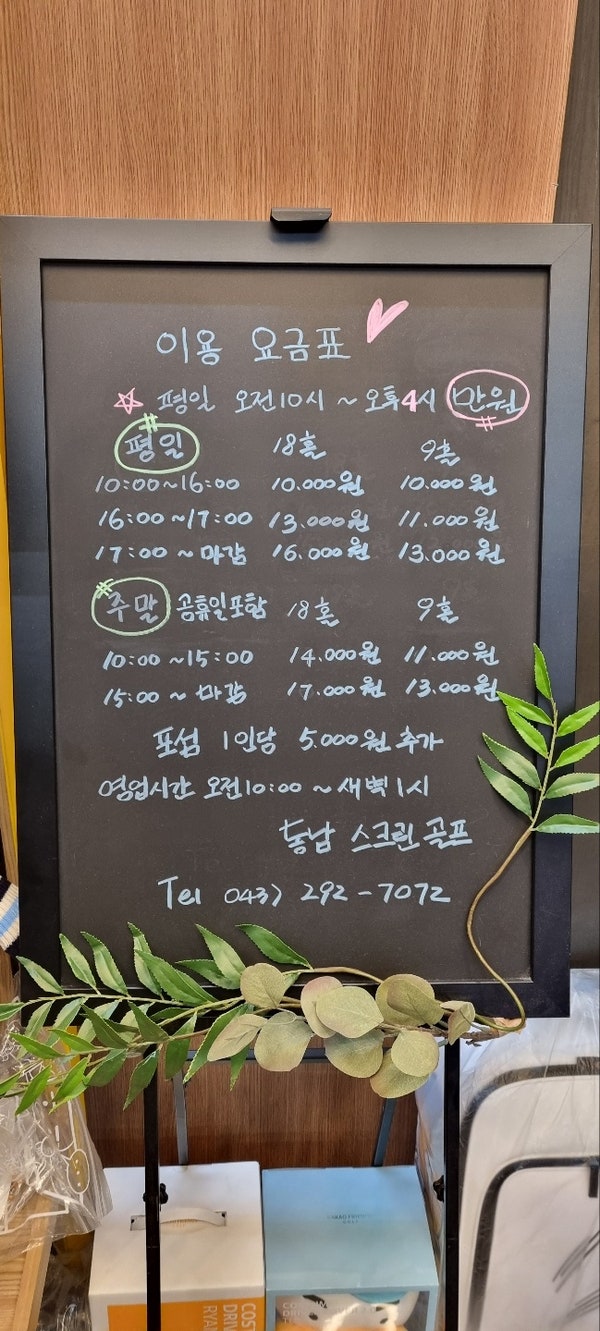 이용 요금표
평일 오전10시 ~ 오후4시 만원
평일 18홀 9홀
10:00~16:00 10.000원 10.000원
16:00~17:00 13.000원 11.000원
17:00 ~ 마감 16.000원 13.000원
주말 공휴일포함 18홀 9홀
10:00 ~15:00 14.000원 11.000원
15:00 ~ 마감 17.000원 13.000원
포섬 1인당 5.000원 추가
영업시간 오전10:00 ~ 새벽1시
동남 스크린 골프
Tel 043) 292-7072
COST
DRIV
RYAN